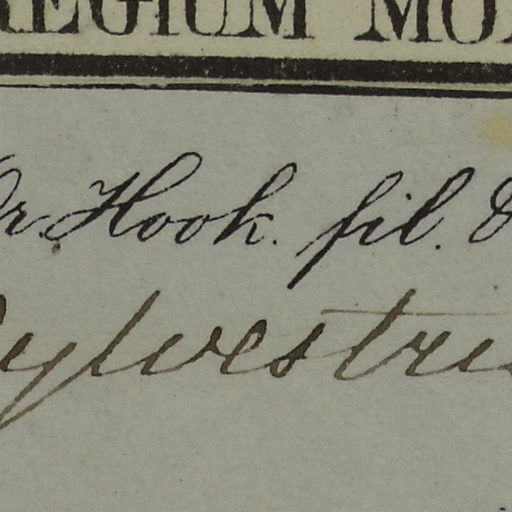 REGIUM MO
Dr. Hook. fil. &
sylvestris